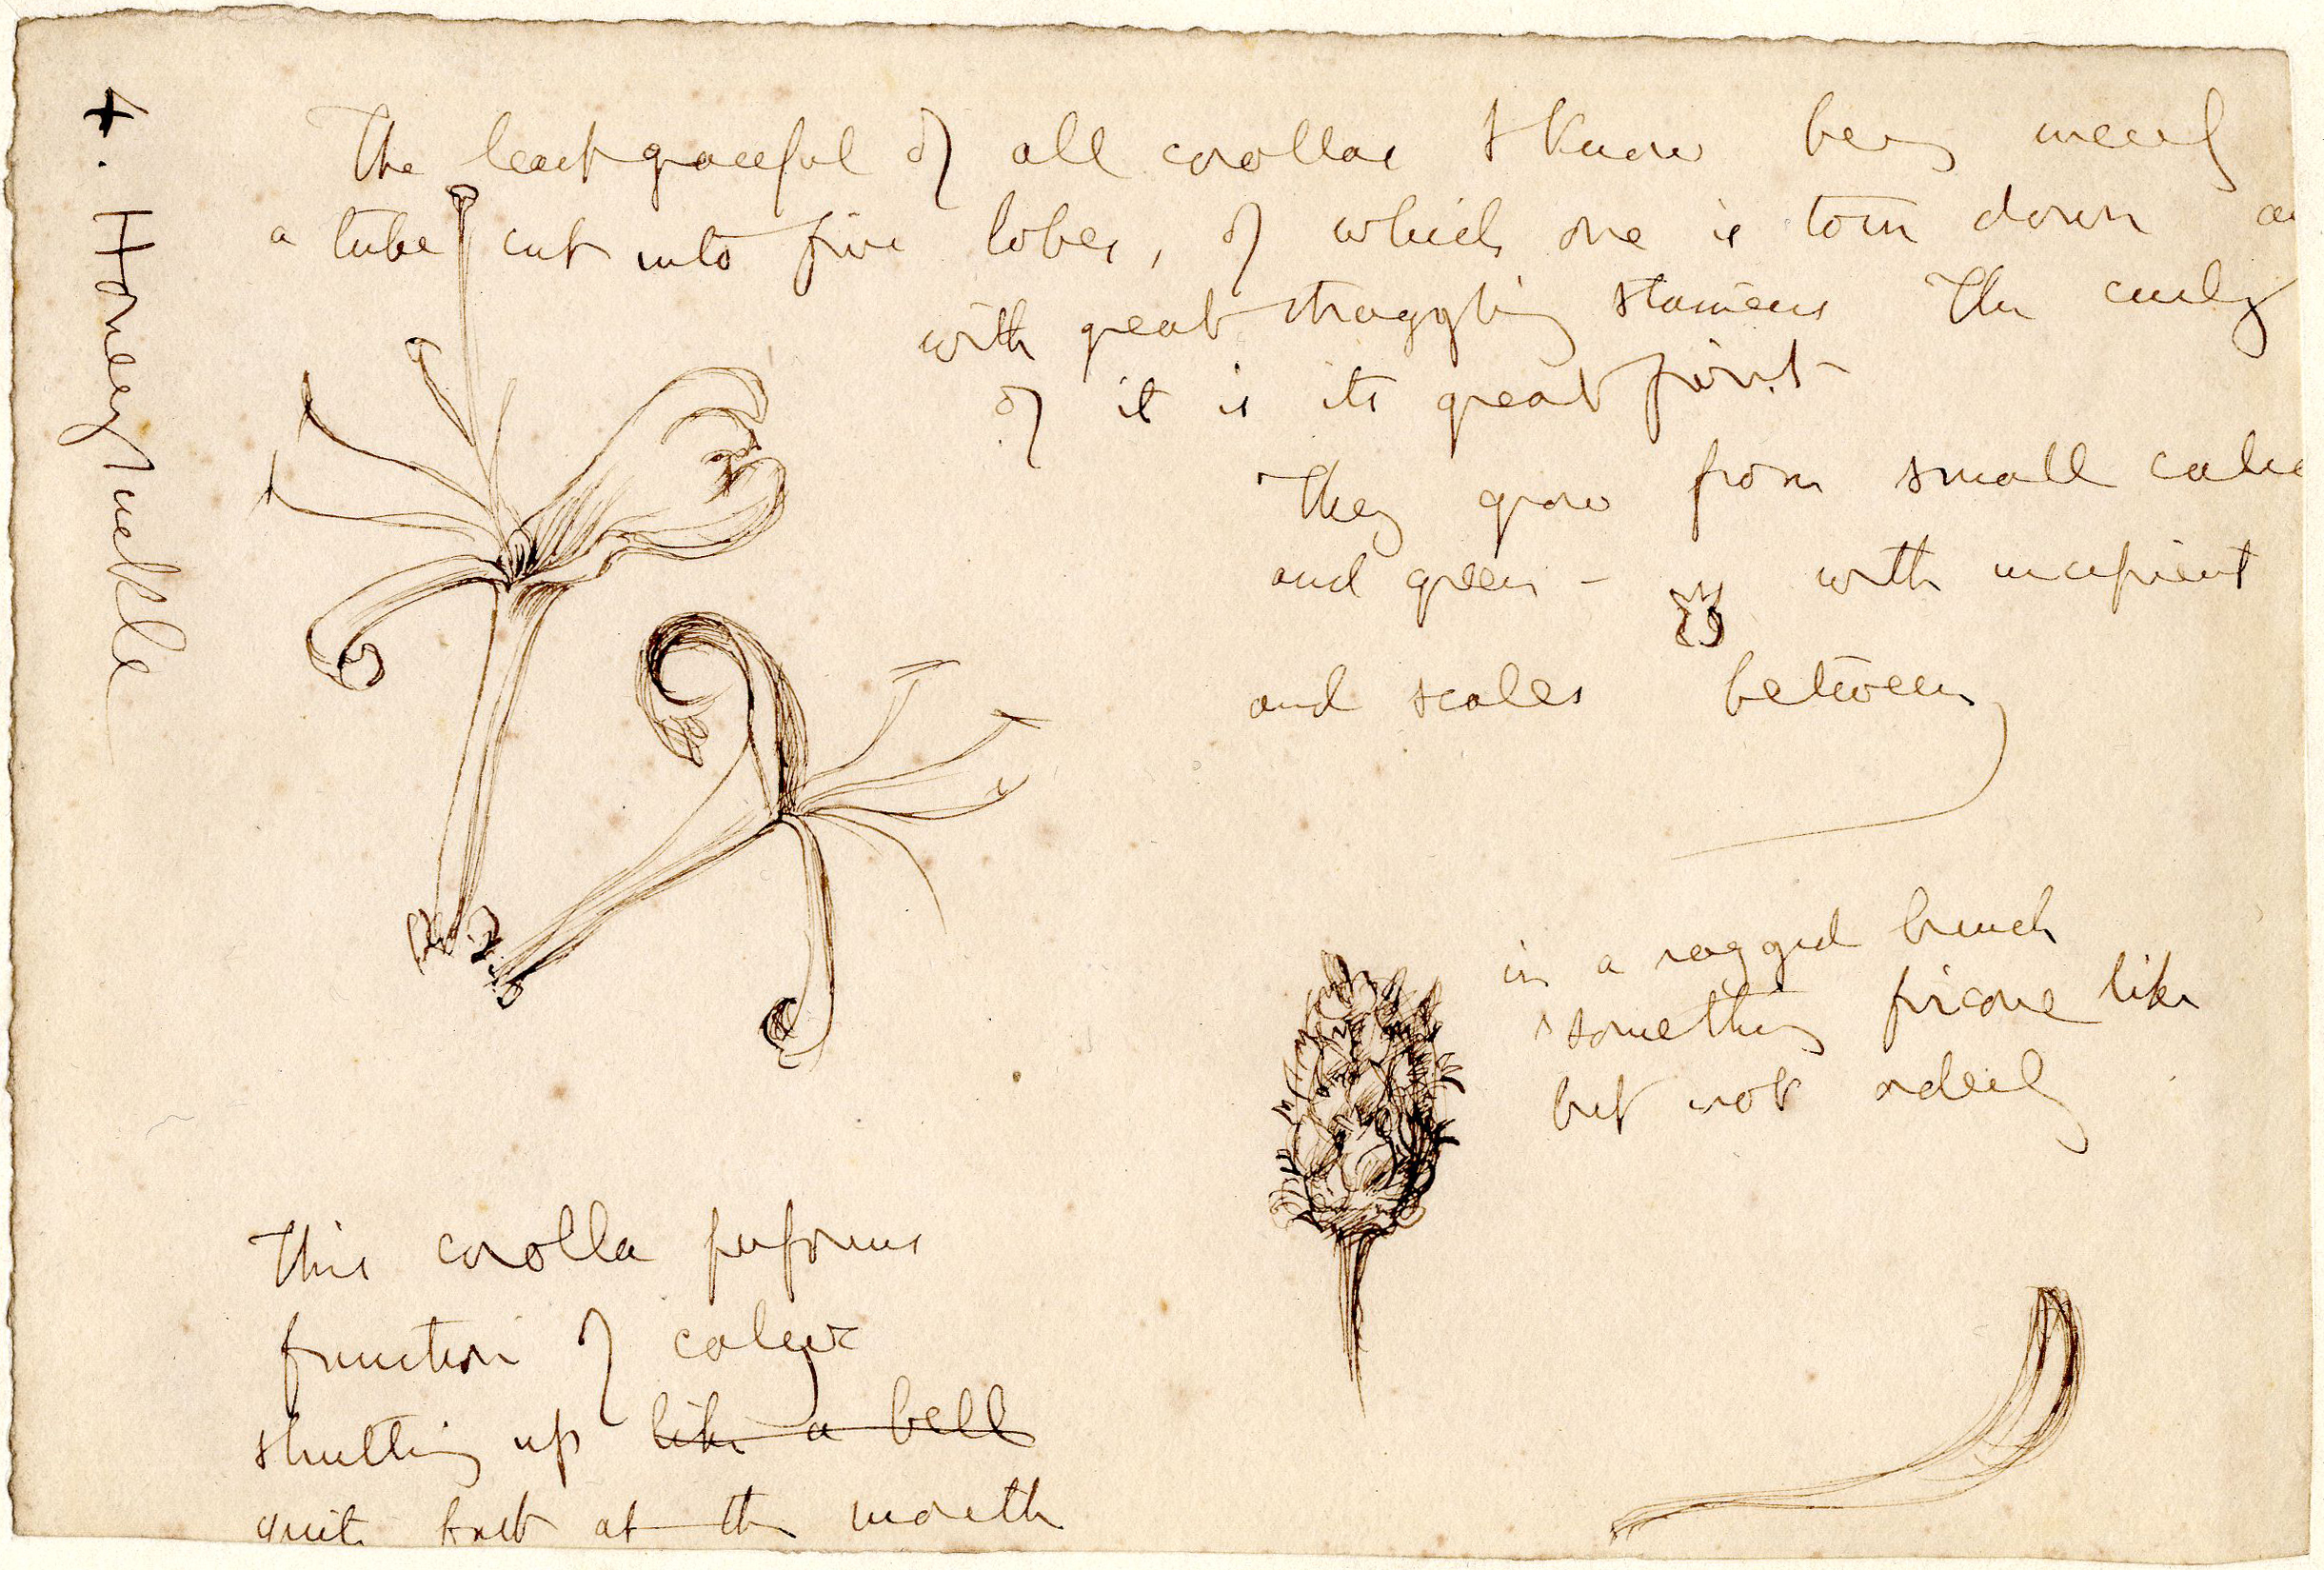 4. Honeysuckle
The least graceful of all corollas I know being merely
a tube cut into five lobes, of which one is torn down
with great straggling stamens The curly
of it is its great point
They grow from small
and green - with incipient
and scales between
in a ragged bunch
something fircone like
but not orderly
This corolla performs
function of calyx
shutting up like a bell
quite fast at the mouth